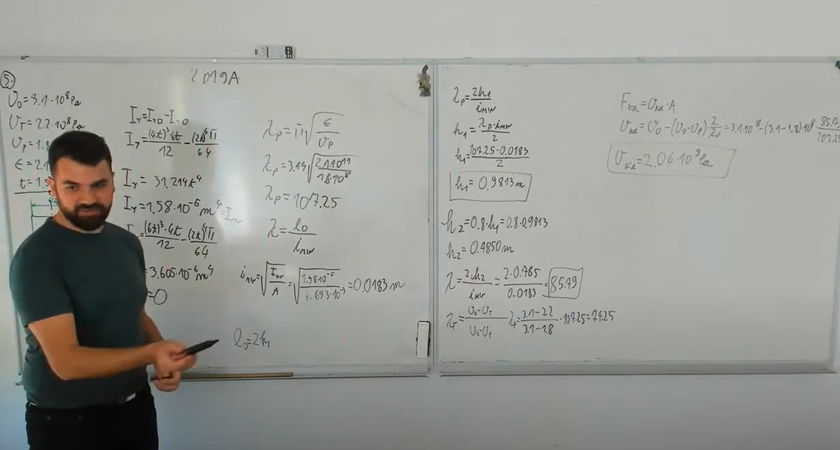 5.
2019A
σ₀=3.1·10⁸Pa
σ_T=2.2·10⁸Pa
σ_p=1.8
E=2.1
I_y=I_y□-I_y○
I_y=(6t)³·4t/12-(2t)⁴π/64
I_y=31.214t⁴
I_y=1.58·10⁻⁶m⁴=I_min
(6t)³·4t/12-(2t)⁴π/64
=3.605·10⁻⁶m⁴
=0
λ_p=π√(E/σ_p)
λ_p=3.14√(2.1·10¹¹/1.8·10⁸)
λ_p=107.25
λ=l₀/i_min
i_min=√(I_min/A)=√(1.58·10⁻⁶/4.693·10⁻³)=0.0183m
l₀=2h₁
λ_p=2h₁/i_min
h₁=λ_p·i_min/2
h₁=107.25·0.0183/2
h₁=0.9813m
h₂=0.8·h₁=0.8·0.9813
h₂=0.7850m
λ=2·h₂/i_min=2·0.785/0.0183=85.79
λ_T=σ₀-σ_T/σ₀-σ_p λ_T=3.1-2.2/3.1-1.8·107.25=74.25
F_kr=σ_kr·A
σ_kr=σ₀-(σ₀-σ_p)λ/λ_p=3.1·10⁸-(3.1-1.8)·10⁸·
σ_kr=2.06·10⁸Pa